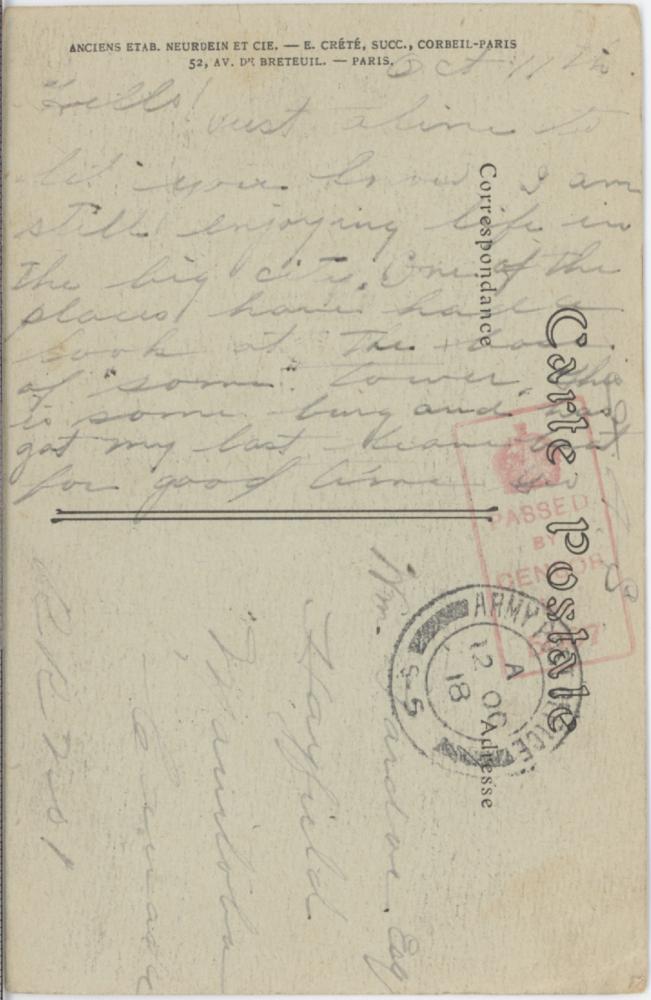 ANCIENS ETAB. NEURDEIN ET CIE. — E. CRÉTÉ, SUCC., CORBEIL-PARIS
52, AV. DE BRETEUIL. — PARIS.
Oct 11th.
Hello!
Just a line to
let you know I am
still enjoying life in
the big city. One of the
places have had a
look at. The
of "some" tower. This
is some burg and has
got my last beat
for good time
Carte Postale
Correspondance
Adresse
PASSED
BY
CENSOR
ARMY
A
12 OC
18
S.5
Wm. Esq
Hayfield
Manitoba
Canada